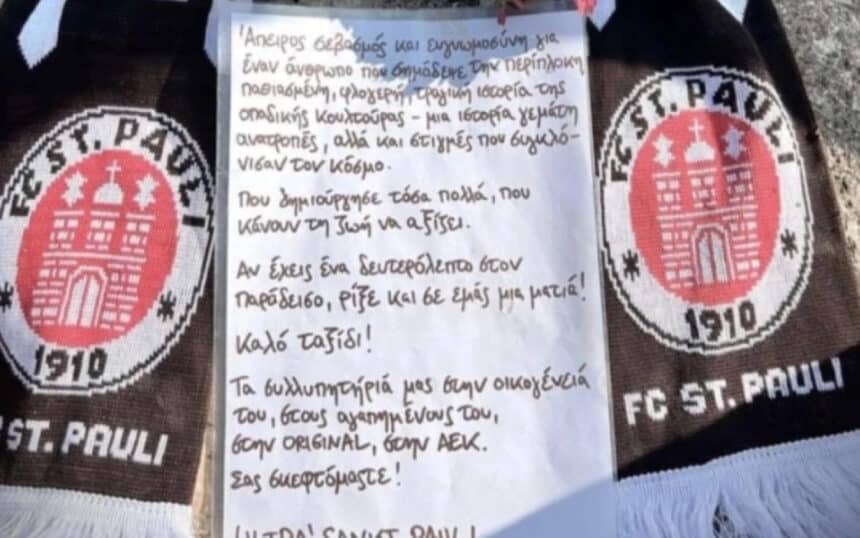 FC ST. PAULI
1910
ST. PAULI
'Απειρος σεβασμός και ευγνωμοσύνη για
έναν άνθρωπο που σημάδεψε την περίπλοκη
παθιασμένη, φλογερή, τραγική ιστορία της
οπαδικής κουλτούρας - μια ιστορία γεμάτη
ανατροπές, αλλά και στιγμές που συγκλό-
νισαν τον κόσμο.
Που δημιούργησε τόσα πολλά, που
κάνουν τη ζωή να αξίζει.
Αν έχεις ένα δευτερόλεπτο στον
παράδεισο, ρίξε και σε εμάς μια ματιά!
Καλό ταξίδι!
Τα συλλυπητήριά μας στην οικογένειά
του, στους αγαπημένους του,
στην ORIGINAL, στην ΑΕΚ.
Σας σκεφτόμαστε!
ULTRA' SANKT PAULI
FC ST. PAULI
1910
FC ST. PAULI